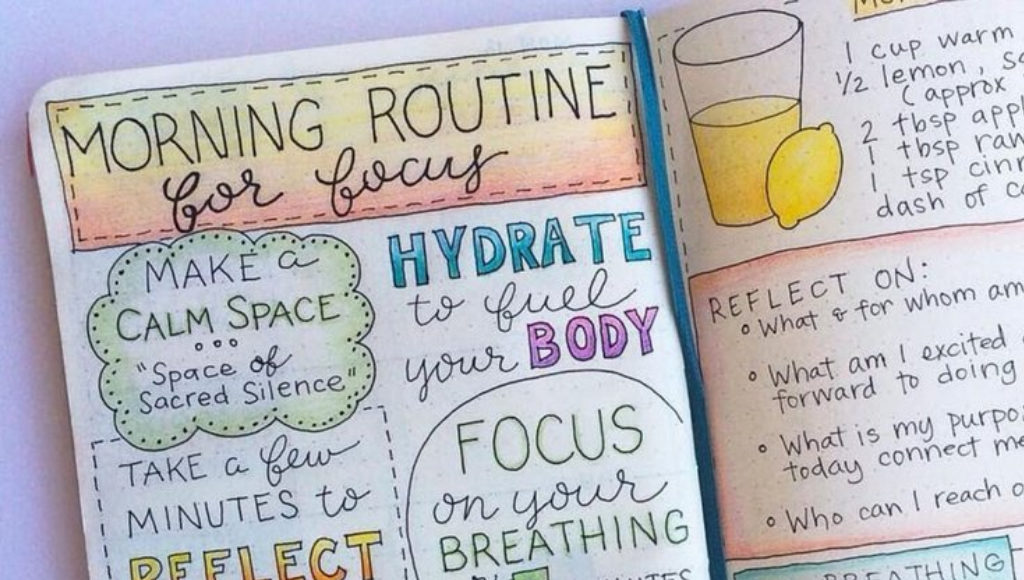 MORNING ROUTINE
for focus
MAKE a
CALM SPACE
"Space of
Sacred Silence"
TAKE a few
MINUTES to
REFLECT
HYDRATE
to fuel
your BODY
FOCUS
on your
BREATHING
1 cup warm
1/2 lemon,
(approx
2 tbsp
1 tbsp raw
1 tsp
dash of
REFLECT ON:
• What & for whom am
• What am I excited
forward to doing
• What is my
today connect
• Who can I reach
BREATHING